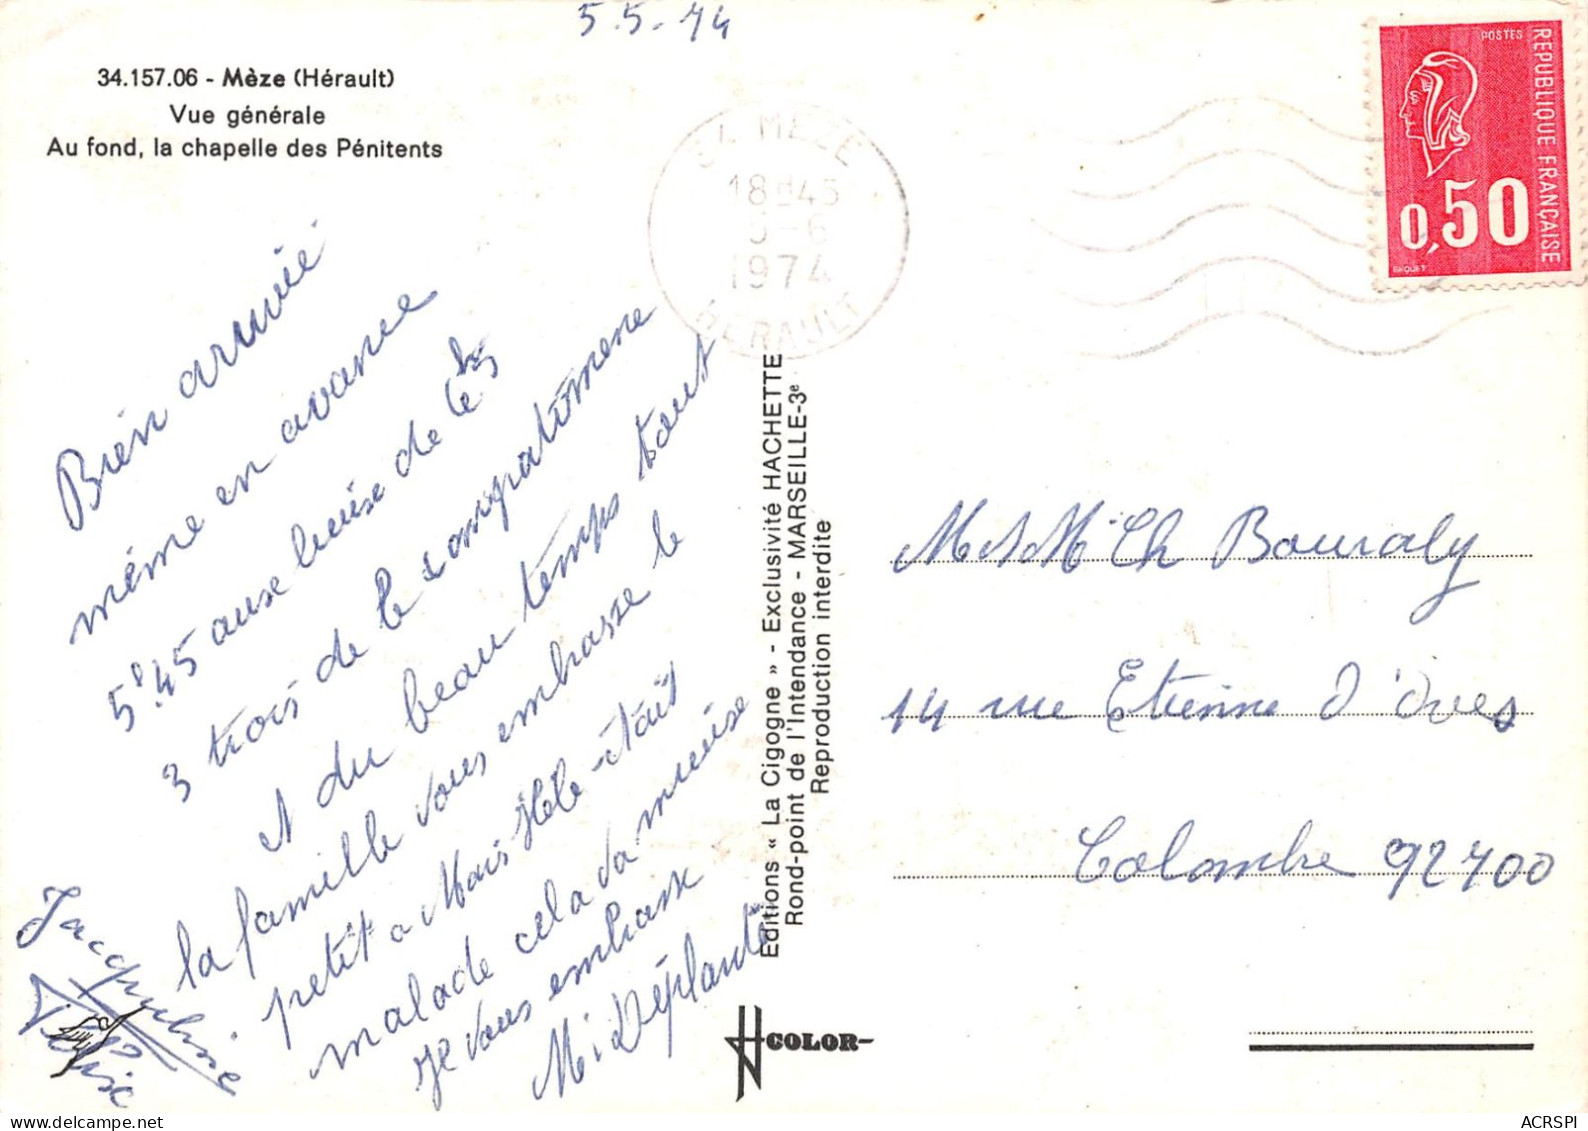 5.5.74
34.157.06 - Mèze (Hérault)
Vue générale
Au fond, la chapelle des Pénitents
34 MEZE
18H45
-6
1974
HERAULT
POSTES
REPUBLIQUE FRANÇAISE
0,50
BEQUET
Bien arrivée
même en avance
5H.45 aux lieux de 6h
3 trois de le compatimene
et du beau temps tout
la famille vous embrasse le
petit a Maris Hele était
malade cela va mieuse
Je vous embrasse
M. Déplanté
Jacqueline
Editions « La Cigogne » - Exclusivité HACHETTE
Rond-point de l'Intendance - MARSEILLE-3e
Reproduction interdite
M & M Ch Bouraly
14 rue Etienne D'Orves
Colombe 92700
COLOR
ACRSPI